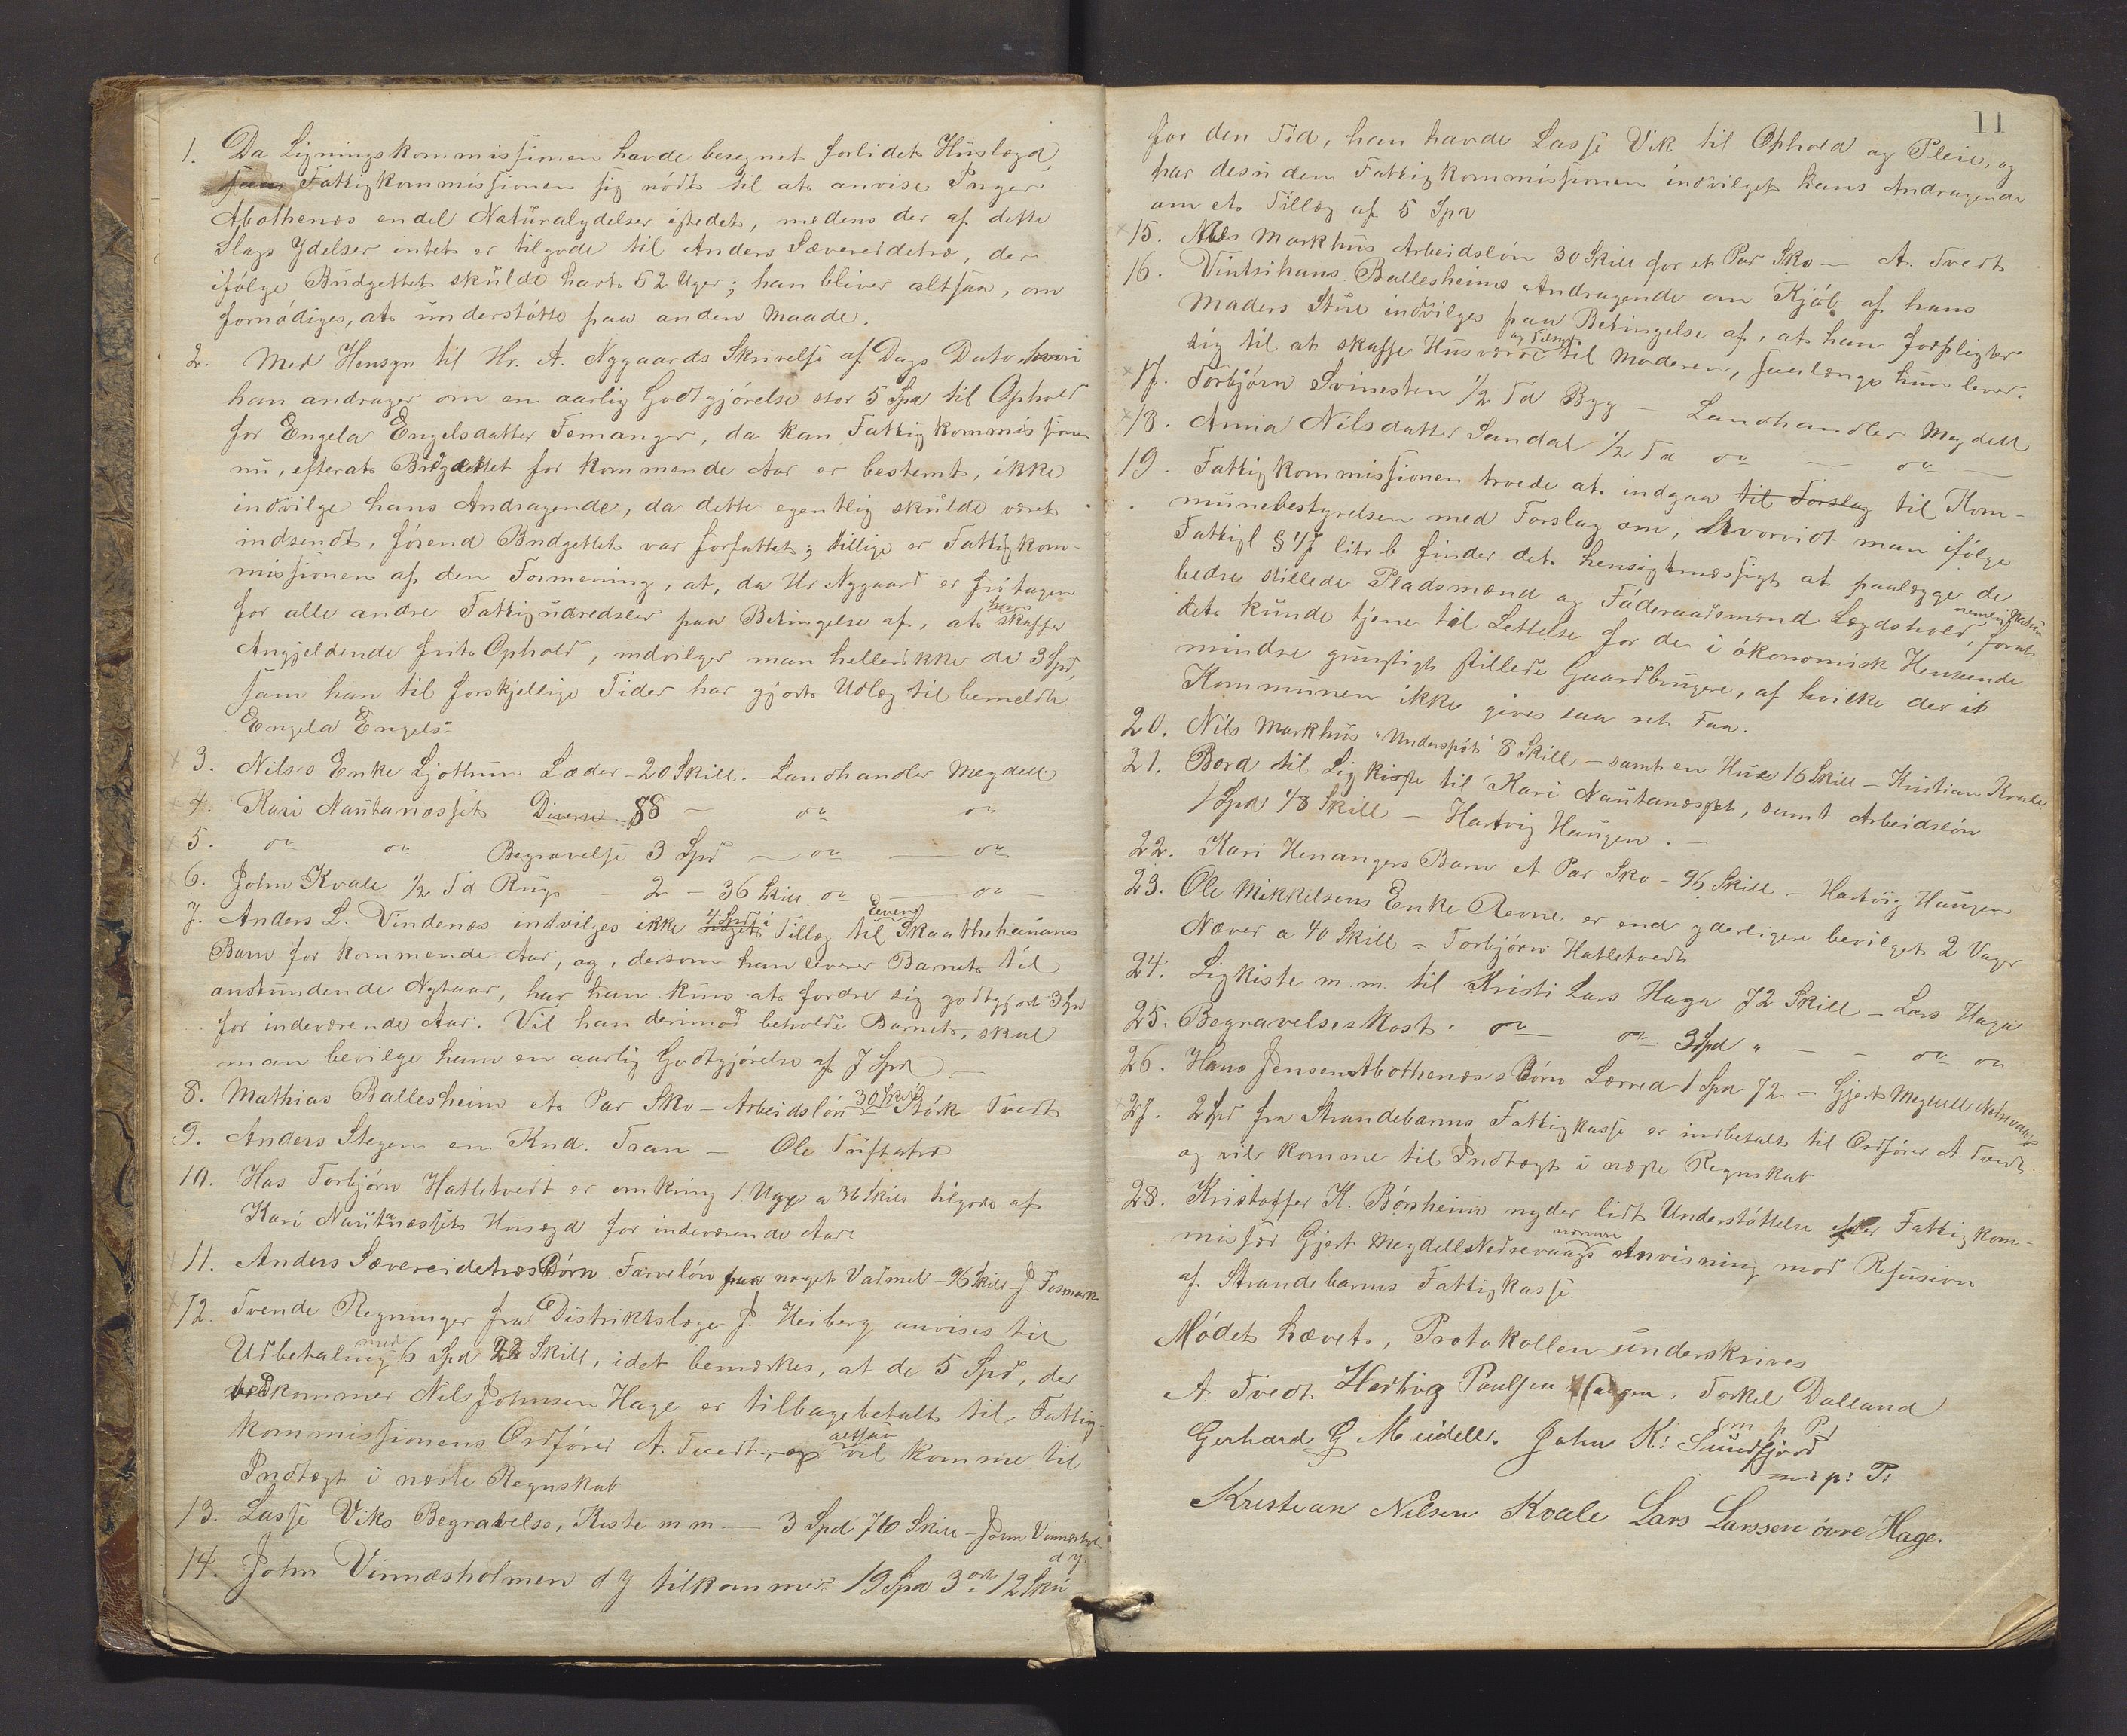 1. Da Ligningskommissionen havde beregnet forlidet Huslægd,
saa Fattigkommissionen sig nödt til at anvise Inger
Abothenæs endel Naturalydelser istedet, medens der af dette
Slags Ydelser intet er tilgode til Anders Sævereidetræ, der
ifölge Budgettet skulde havt 52 Uger; han bliver altsaa, om
fornödiges, at understötte paa anden Maade.
2. Med Hensyn til Hr. A. Nygaards Skrivelse af Dags Dato hvori
han andrager om en aarlig Godtgjörelse stor 5 Spd til Ophold
for Engela Engelsdatter Femanger, da kan Fattigkommissionen
nu, efterat Budgettet for kommende Aar er bestemt, ikke
indvilge hans Andragende, da dette egentlig skulde været
indsendt, förend Budgettet var forfattet; tillige er Fattigkom-
missionen af den Formening, at, da Hr Nygaard er fritagen
for alle andre Fattigudredsler paa Betingelse af, at han skaffer
Angjeldende frit Ophold, indvilger man heller ikke de 3 Spd,
som han til forskjellige Tider har gjort Udlæg til bemeldte
Engela Engels:
3. Nilses Enke Ljottum Læder - 20 Skill. - Landhandler Meydell
4. Kari Nautanæsset Diverse 88 - do do
5. do do Begravelse 3 Spd - do - do
6. John Kvale 1/2 Td Rug - 2 - 36 Skill do - do -
7. Anders L. Vindenæs indvilges ikke noget 4 Spd i Tillæg til Eevens Skaathehauans
Barn for kommende Aar, og, dersom han leverer Barnet til
anstundende Nytaar, har han kun at fordre sig godtgjort 3 Spd
for indeværende Aar. Vil han derimod beholde Barnet, skal
man bevilge ham en aarlig Godtgjörelse af 7 Spd -
8. Mathias Ballesheim et Par Sko - Arbeidslön 30 Skill Störk Tvedt
9. Anders Stegen en Knd. Tran - Ole Tuftetræ
10. Hos Torbjörn Hatletvedt er omkring 1 Uge a 36 Skill tilgode af
Kari Nautanæssets Huslægd for indeværende Aar.
11. Anders Sævereidetræs Börn Farvelön paa noget Vadmel - 96 Skill - J. Fosmark
12. Tvende Regninger fra Distriktslæge J. Heiberg anvises til
Udbetaling med 6 Spd 22 Skill, idet bemærkes, at de 5 Spd, der
vedkommer Nils Johnsen Hage er tilbagebetalt til Fattig-
kommissionens Ordförer A. Tvedt, og altsaa vil komme til
Indtægt i næste Regnskab
13. Lasse Viks Begravelse, Kiste m m - 3 Spd 76 Skill - John Vinnæsholm
d y.
14. John Vinnæsholmen d y tilkommer 19 Spd 3 ort 12 Skil
11
for den Tid, han havde Lasse Vik til Ophold og Pleie, og
har desuden Fattigkommissionen indvilget hans Andragende
om et Tillæg af 5 Spd
15. Nils Markhus Arbeidslön 30 Skill for et Par Sko - A. Tvedt
16. Vintrihans Ballesheims Andragende om Kjöb af hans
Moders Stue indvilges paa Betingelse af, at han forpligter
sig til at skaffe Husværre og Tilsyn til Moderen, saalænge hun lever.
17. Torbjörn Svinesten 1/2 Td Byg - Landhandler Meydell
18. Anna Nilsdatter Sandal 1/2 Td do - do -
19. Fattigkommissionen troede at indgaa til Forslag til Kom-
munebestyrelsen med Forslag om, hvorvidt man ifölge
Fattigl § 17 litr b finder det hensigtmæssigt at paalægge de
bedre stillede Pladsmænd og Föderaadsmænd Lægdshold, nemlig Natur forat
det kunde tjene til Lettelse for de i ökonomisk Henseende
mindre gunstigt stillede Gaardbrugere, af hvilke der i
Kommunen ikke gives saa ret Faa.
20. Nils Markhus "Underspöt" 8 Skill - samt en Hue 16 Skill - Kristian Kvale
21. Bord til Ligkiste til Kari Nautanæsset, samt Arbeidslön
1 Spd 48 Skill - Hartvig Haugen. -
22. Kari Henangers Barn et Par Sko - 96 Skill - Hartvig Haugen
23. Ole Mikkelsens Enke Revne er end yderligere bevilget 2 Vager
Næver a 40 Skill - Torbjörn Hatletvedt
24. Ligkiste m.m. til Kristi Lars Haga 72 Skill - Lars Haga
25. Begravelseskost. do do 3 Spd " - - do do
26. Hans Jensen Abothenæs's Börn Lærred 1 Spd 72 - Gjert Meydell Nedrevaage
27. 2 Spd fra Strandebarms Fattigkasse er indbetalt til Ordförer A. Tvedt.
og vil komme til Indtægt i næste Regnskab
28. Kristoffer K. Börsheim nyder lidt Understöttelse efter Fattigkom-
missær Gjert Meydell Nedrevaage nærmere Anvisning mod Refusion
af Strandebarms Fattigkasse.
Mödet hævet, Protokollen underskrives
A. Tvedt Hartvig Paulsen Haugen. Torkel Dalland
m p P
Gerhard G Meidell. John K: Sundfjord
m: p: P:
Kristian Nilsen Kvale Lars Larssen övre Hage.